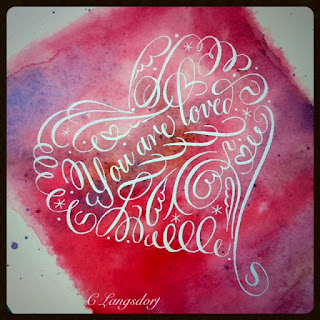 You are loved
C Langsdorf